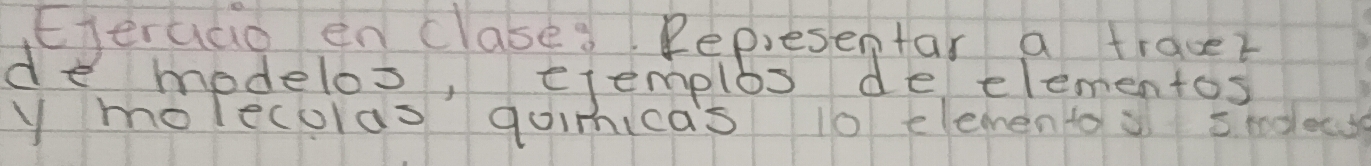 Ejercicio en clase: Representar a travez
de modelos, ejemplos de elementos
y molecolas quimicas 10 elementos 5 molecu